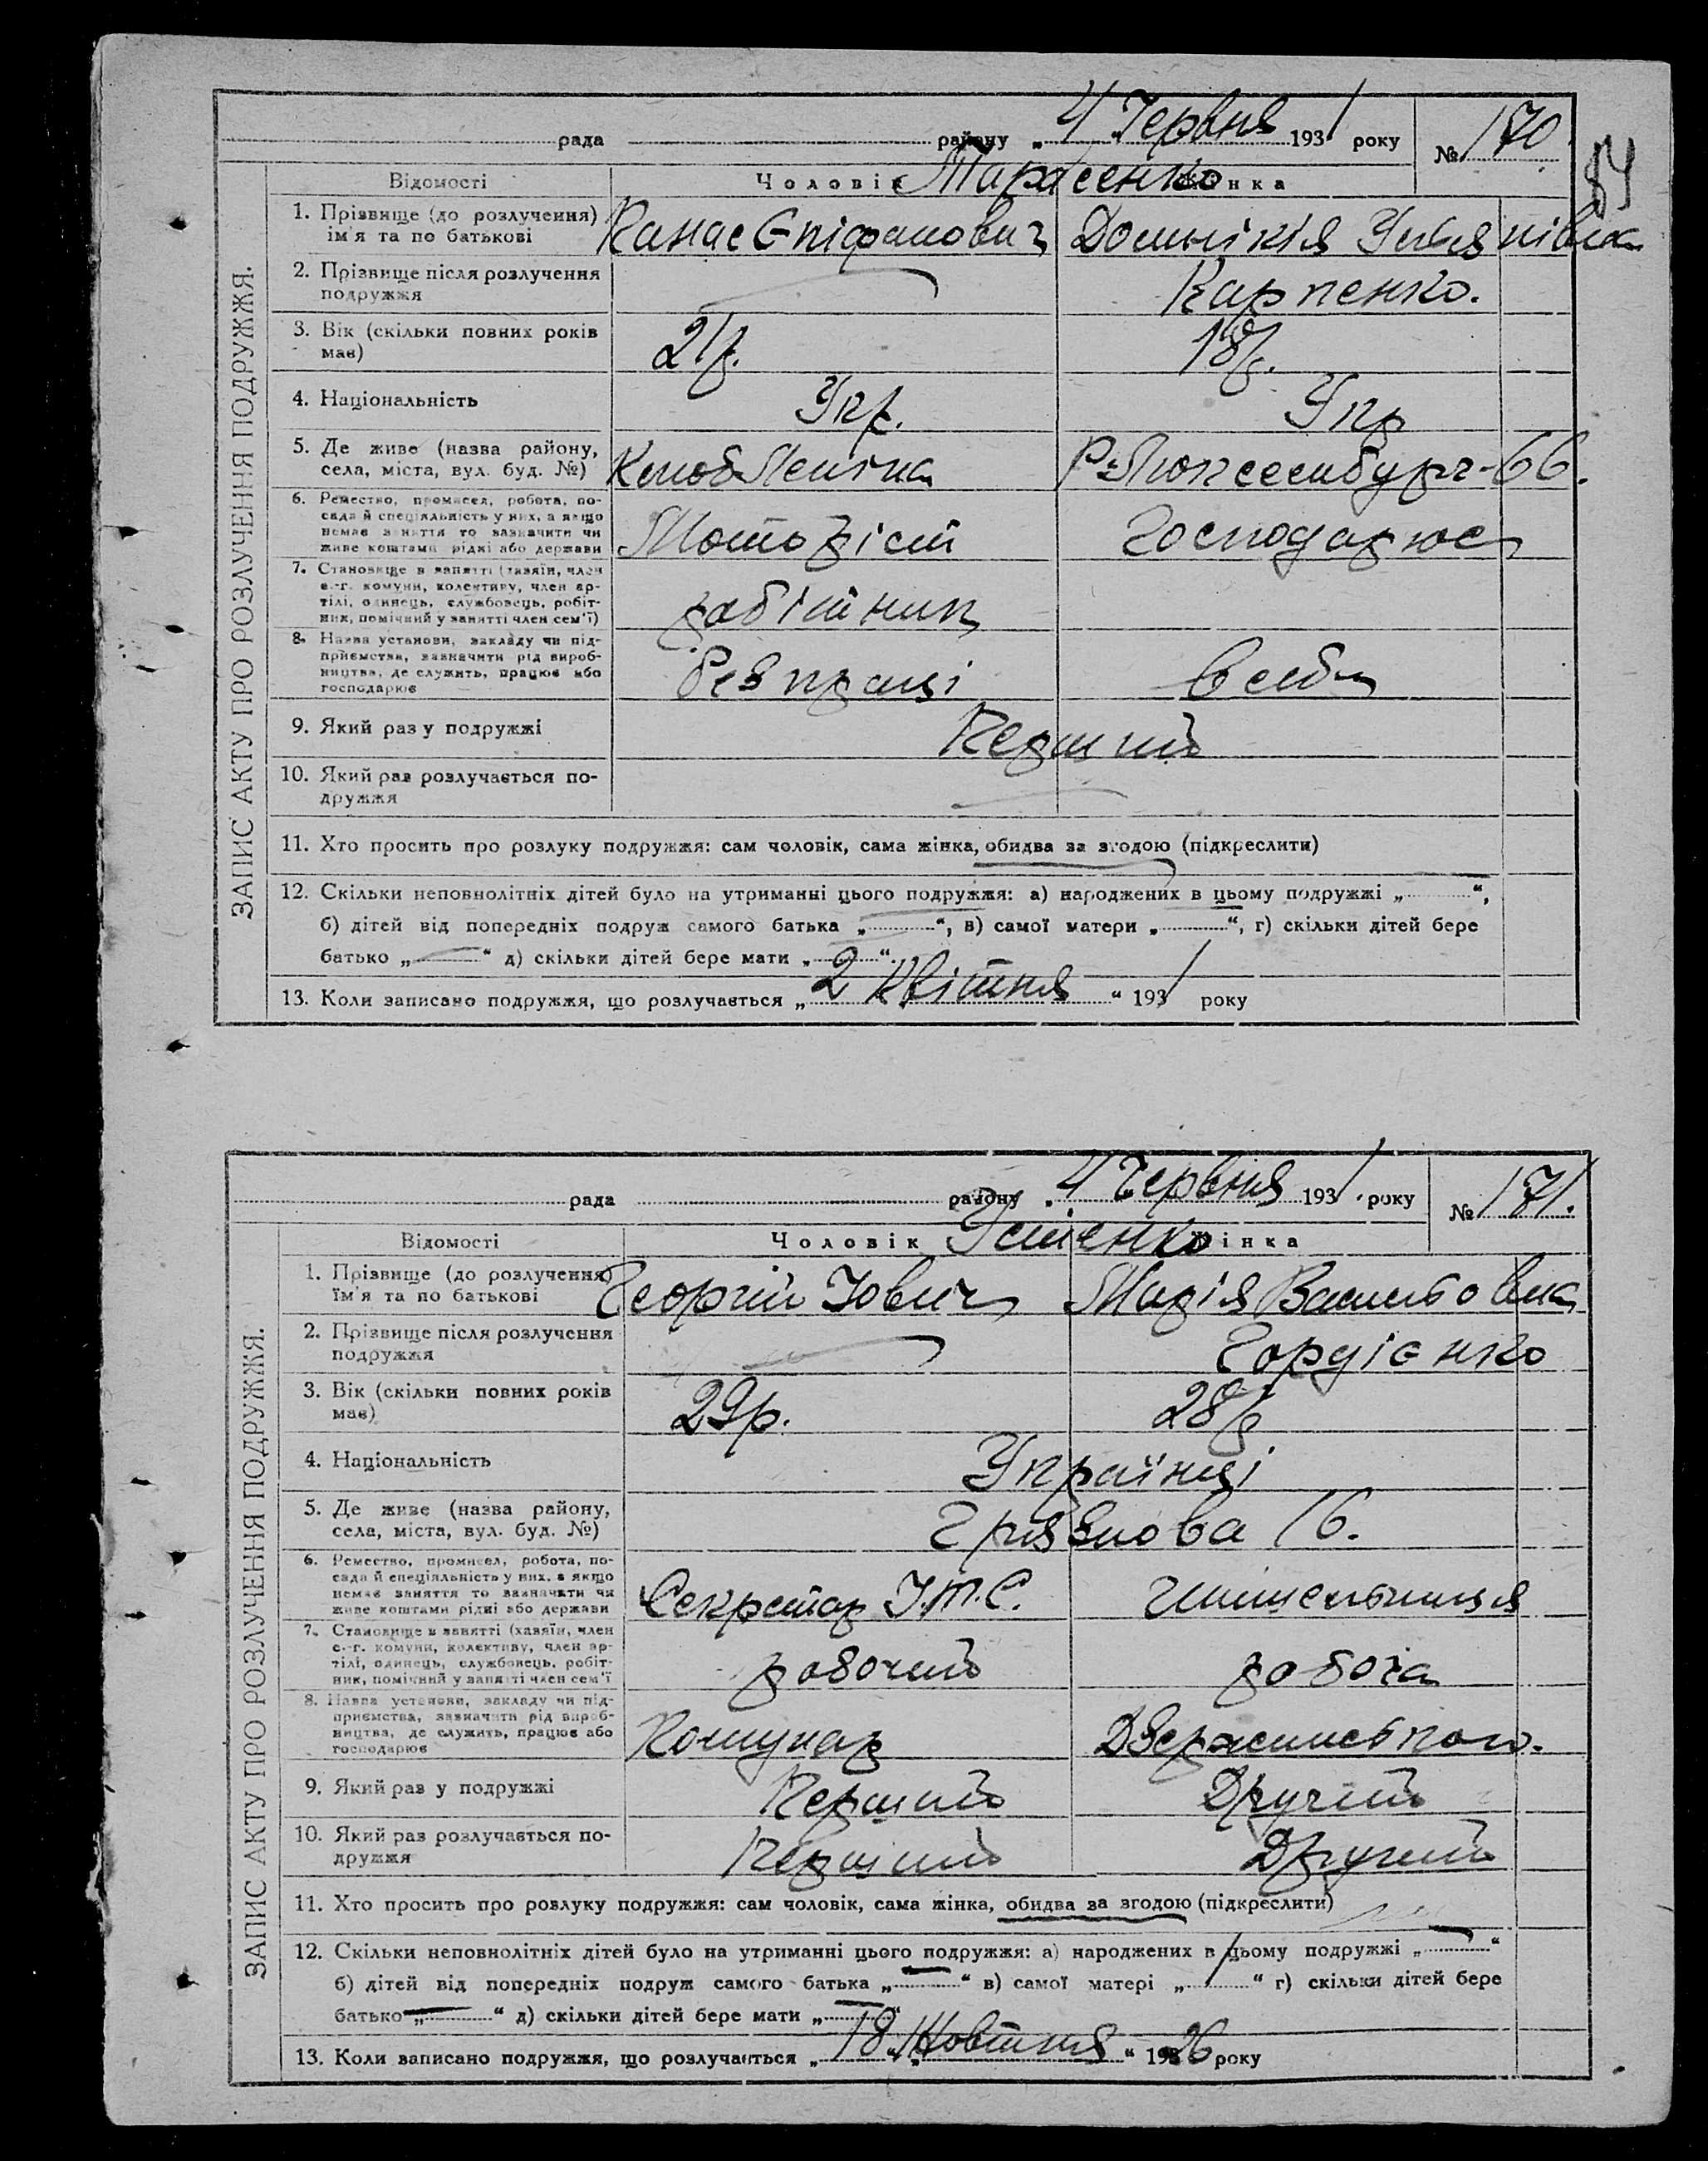 84
ЗАПИС АКТУ ПРО РОЗЛУЧЕННЯ ПОДРУЖЖЯ.
рада району „4 Червня 1931 року № 170
Відомості Чоловік Жінка
Тарасенко
1. Прізвище (до розлучення) ім'я та по батькові Епіфанович Домнікія Улянівна
2. Прізвище після розлучення подружжя Карпенко.
3. Вік (скільки повних років має) 21р. 18р.
4. Національність Укр. Укр
5. Де живе (назва району, села, міста, вул. буд. №) Леніна Р. Люксембург-66.
6. Ремество, промисел, робота, посада й спеціяльність у них, а якщо немає заняття то зазначити чи живе коштами рідні або держави Моторіст Господарює
7. Становище в занятті (хазяїн, член с.-г. комуни, колективу, член артілі, одинець, службовець, робітник, помічний у занятті член сем'ї) робітник
8. Назва установи, закладу чи підприємства, зазначити рід виробництва, де служить, працює або господарює без праці в себе
9. Який раз у подружжі Перший
10. Який раз розлучається подружжя
11. Хто просить про розлуку подружжя: сам чоловік, сама жінка, обидва за згодою (підкреслити)
12. Скільки неповнолітніх дітей було на утриманні цього подружжя: а) народжених в цьому подружжі „ “,
б) дітей від попередніх подруж самого батька „ “, в) самої матери „ “, г) скільки дітей бере
батько „ “ д) скільки дітей бере мати „ “.
13. Коли записано подружжя, що розлучається „2 Квітня “ 1931 року
ЗАПИС АКТУ ПРО РОЗЛУЧЕННЯ ПОДРУЖЖЯ.
рада району „4 Червня 1931 року № 171.
Відомості Чоловік Жінка
Устенко
1. Прізвище (до розлучення) ім'я та по батькові Георгій Йович Марія Васильовна
2. Прізвище після розлучення подружжя Гордієнко
3. Вік (скільки повних років має) 29р. 28р
4. Національність Українці
5. Де живе (назва району, села, міста, вул. буд. №) Грязнова 16.
6. Ремество, промисел, робота, посада й спеціяльність у них, а якщо немає заняття то зазначити чи живе коштами рідні або держави Секретар І.Т.С. Учительниця
7. Становище в занятті (хазяїн, член с.-г. комуни, колективу, член артілі, одинець, службовець, робітник, помічний у занятті член сем'ї робочий робоча
8. Назва установи, закладу чи підприємства, зазначити рід виробництва, де служить, працює або господарює Комунар Дзержинського.
9. Який раз у подружжі Перший Другий
10. Який раз розлучається подружжя Перший Другий
11. Хто просить про розлуку подружжя: сам чоловік, сама жінка, обидва за згодою (підкреслити)
12. Скільки неповнолітніх дітей було на утриманні цього подружжя: а) народжених в цьому подружжі „ “
б) дітей від попередніх подруж самого батька „ “ в) самої матері „ “ г) скільки дітей бере
батько „ “ д) скільки дітей бере мати „ “
13. Коли записано подружжя, що розлучається „18 Жовтня “ 1926 року